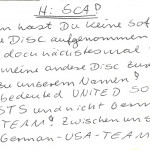 Hi SCA!
n hast Du keine Sof
e Disc aufgenommen
doch nächstesmal
meine andere Disc zur
zu unserem Namen!
bedeuted UNITED SO
STS und nicht benn
TEAM? Zwischen uns
German-USA-TEAM